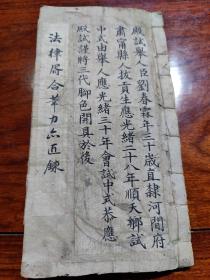 殿試舉人臣劉春霖年三十歲直隸河間府
肅甯縣人拔貢生應光緒二十八年順天鄉試
中式由舉人應光緒三十年會試中式恭應
殿試謹將三代腳色開具於後
法律層合筆力亦近鍊